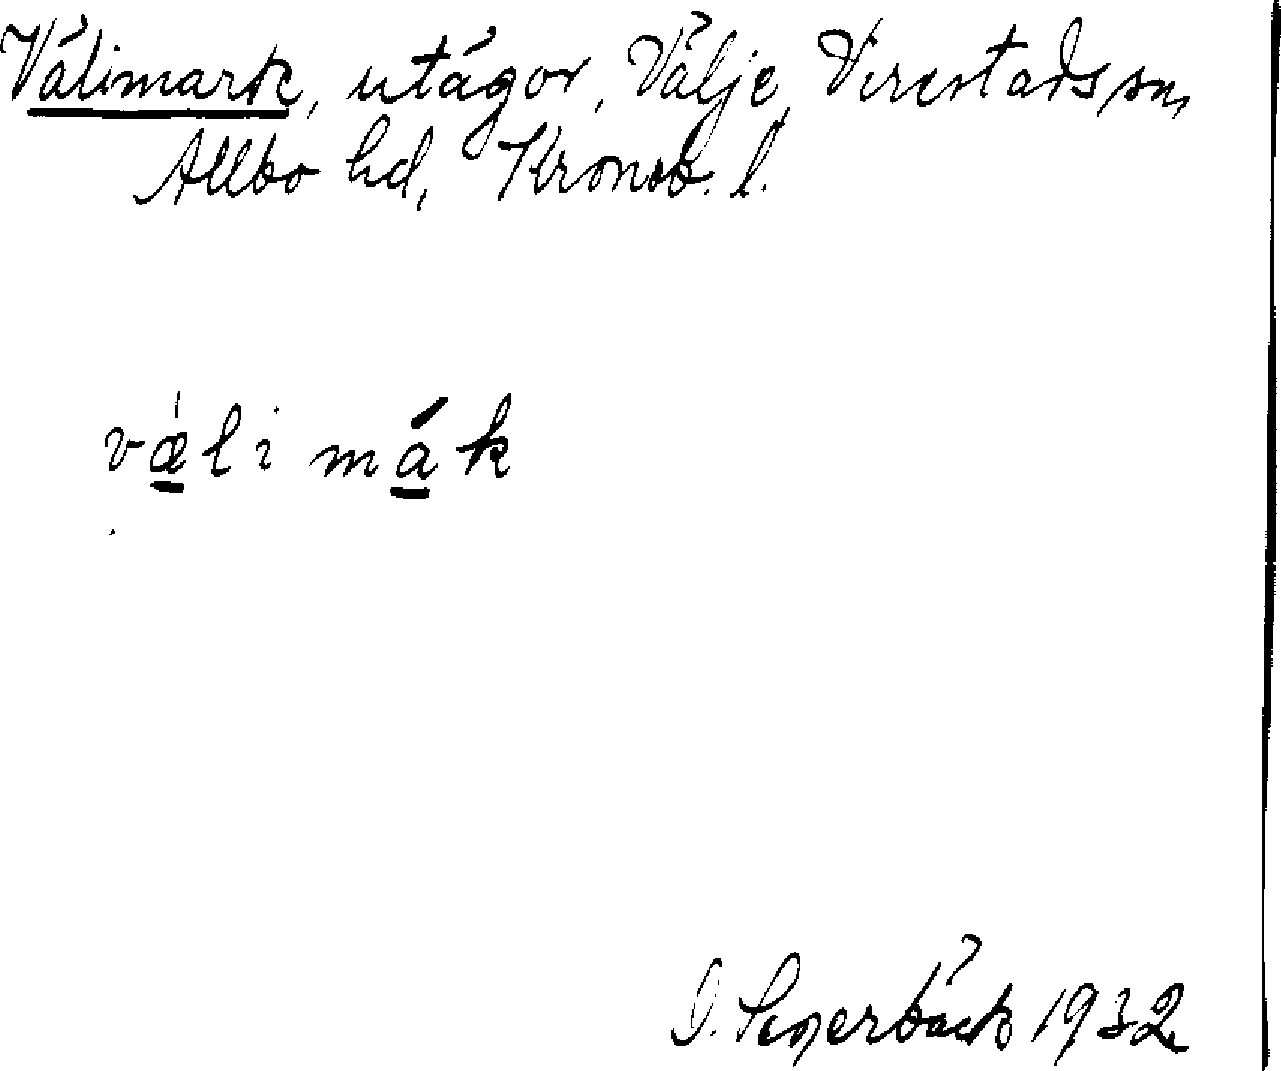 Välimark, utägor, Välje, Virestads sn,
Allbo hd, Kronob. l.
væ̀li mák
I. Ingerbäck 1932